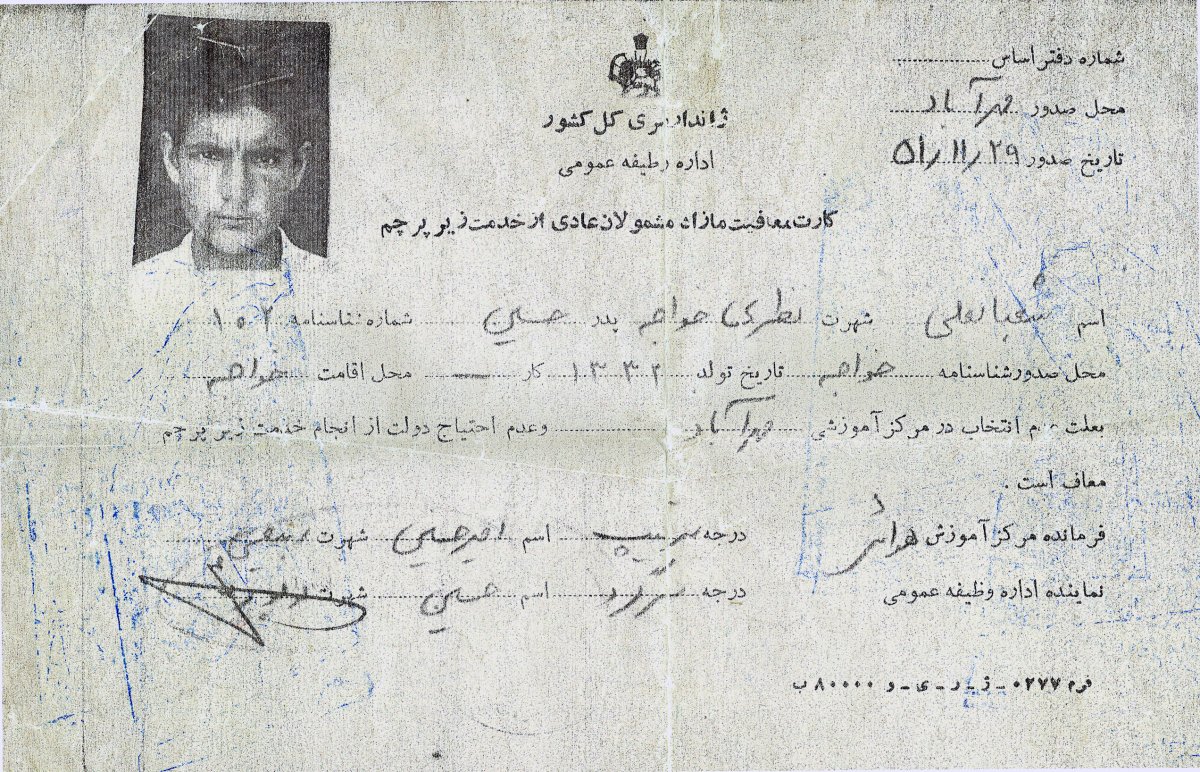 شماره دفتر اساس
محل صدور مهرآباد
تاریخ صدور ۵۱/۱۱/۲۹
ژاندارمری کل کشور
اداره وظیفه عمومی
کارت معافیت مازاد مشمولان عادی از خدمت زیر پرچم
اسم شعبانعلی شهرت نظری خواجه پدر حسین شماره شناسنامه ۱۰۲
محل صدور شناسنامه خواجه تاریخ تولد ۱۳۳۲ کار — محل اقامت خواجه
بعلت عدم انتخاب در مرکز آموزشی مهرآباد وعدم احتیاج دولت از انجام خدمت زیر پرچم
معاف است .
فرمانده مرکز آموزش هوائی درجه سرتیپ اسم امیرحسین شهرت
نماینده اداره وظیفه عمومی درجه اسم حسین شهرت
فرم ۰۲۷۷ - ژ - ر - ی - و ۸۰۰۰۰ ب